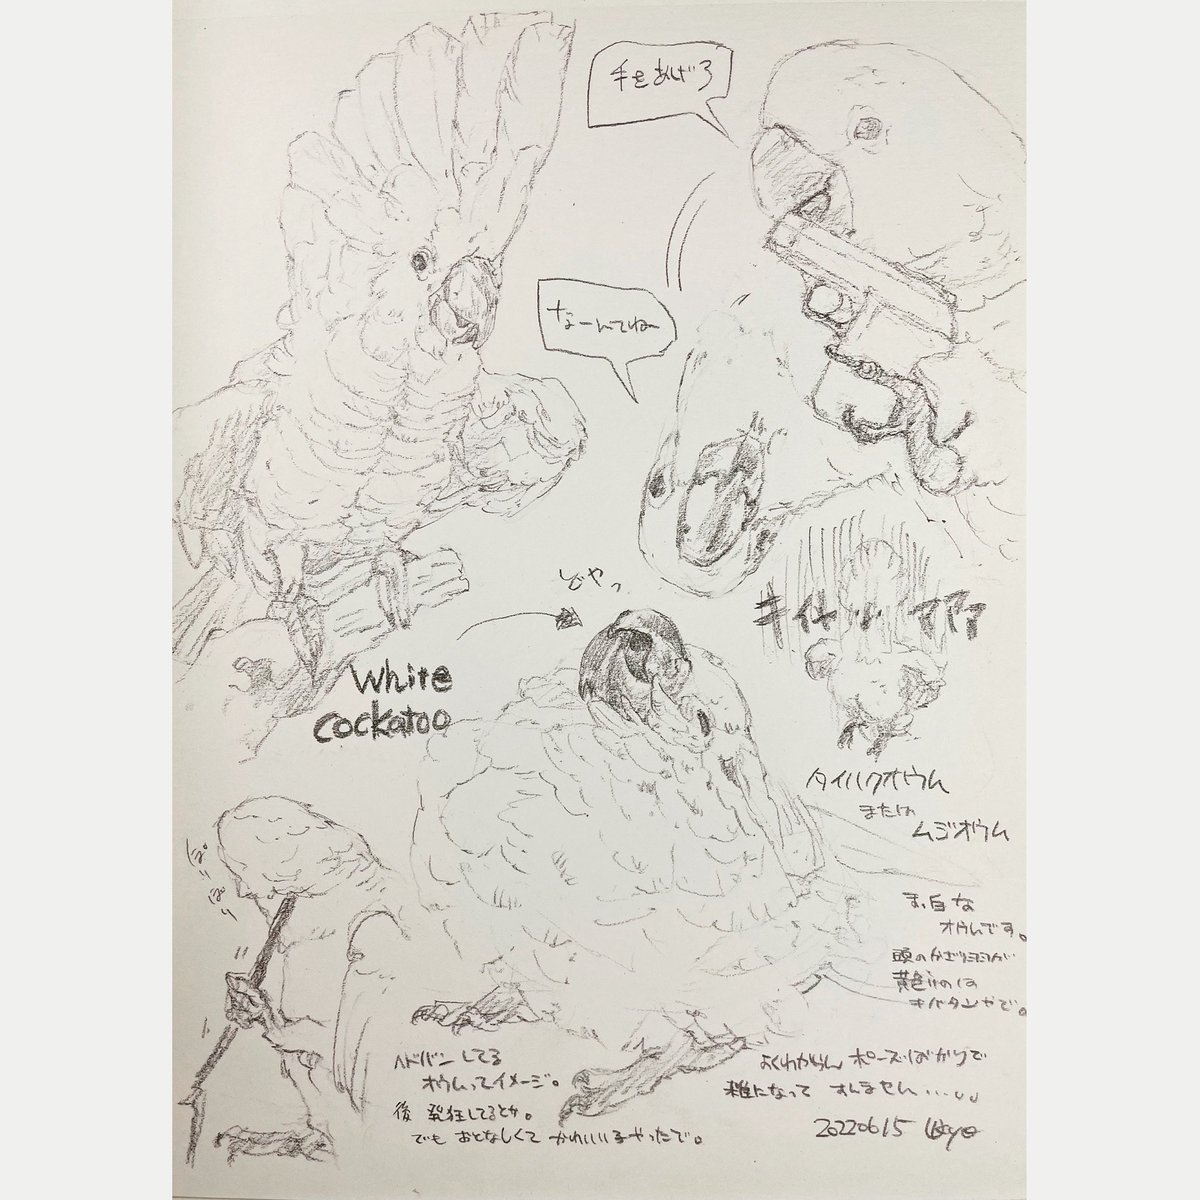 手をあげろ
なーんてね
どやっ
キィャァァァァ
White
cockatoo
タイハクオウム
または
ムジオウム
ぽり
ぽり
まっ白な
オウムです。
頭のかざりヨシが
黄色いのは
キバタンやで。
ヘドバンしてる
オウムってイメージ。
後 発狂してるとか。
でも おとなしくて かわいい子やったで。
よくわからん ポーズばかりで
雑になって すんません…
20220615